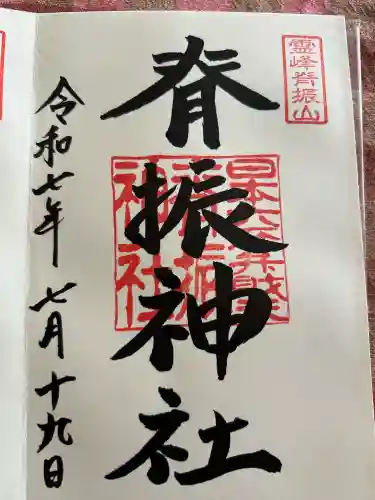 霊峰脊振山
脊振神社
令和七年 七月十九日